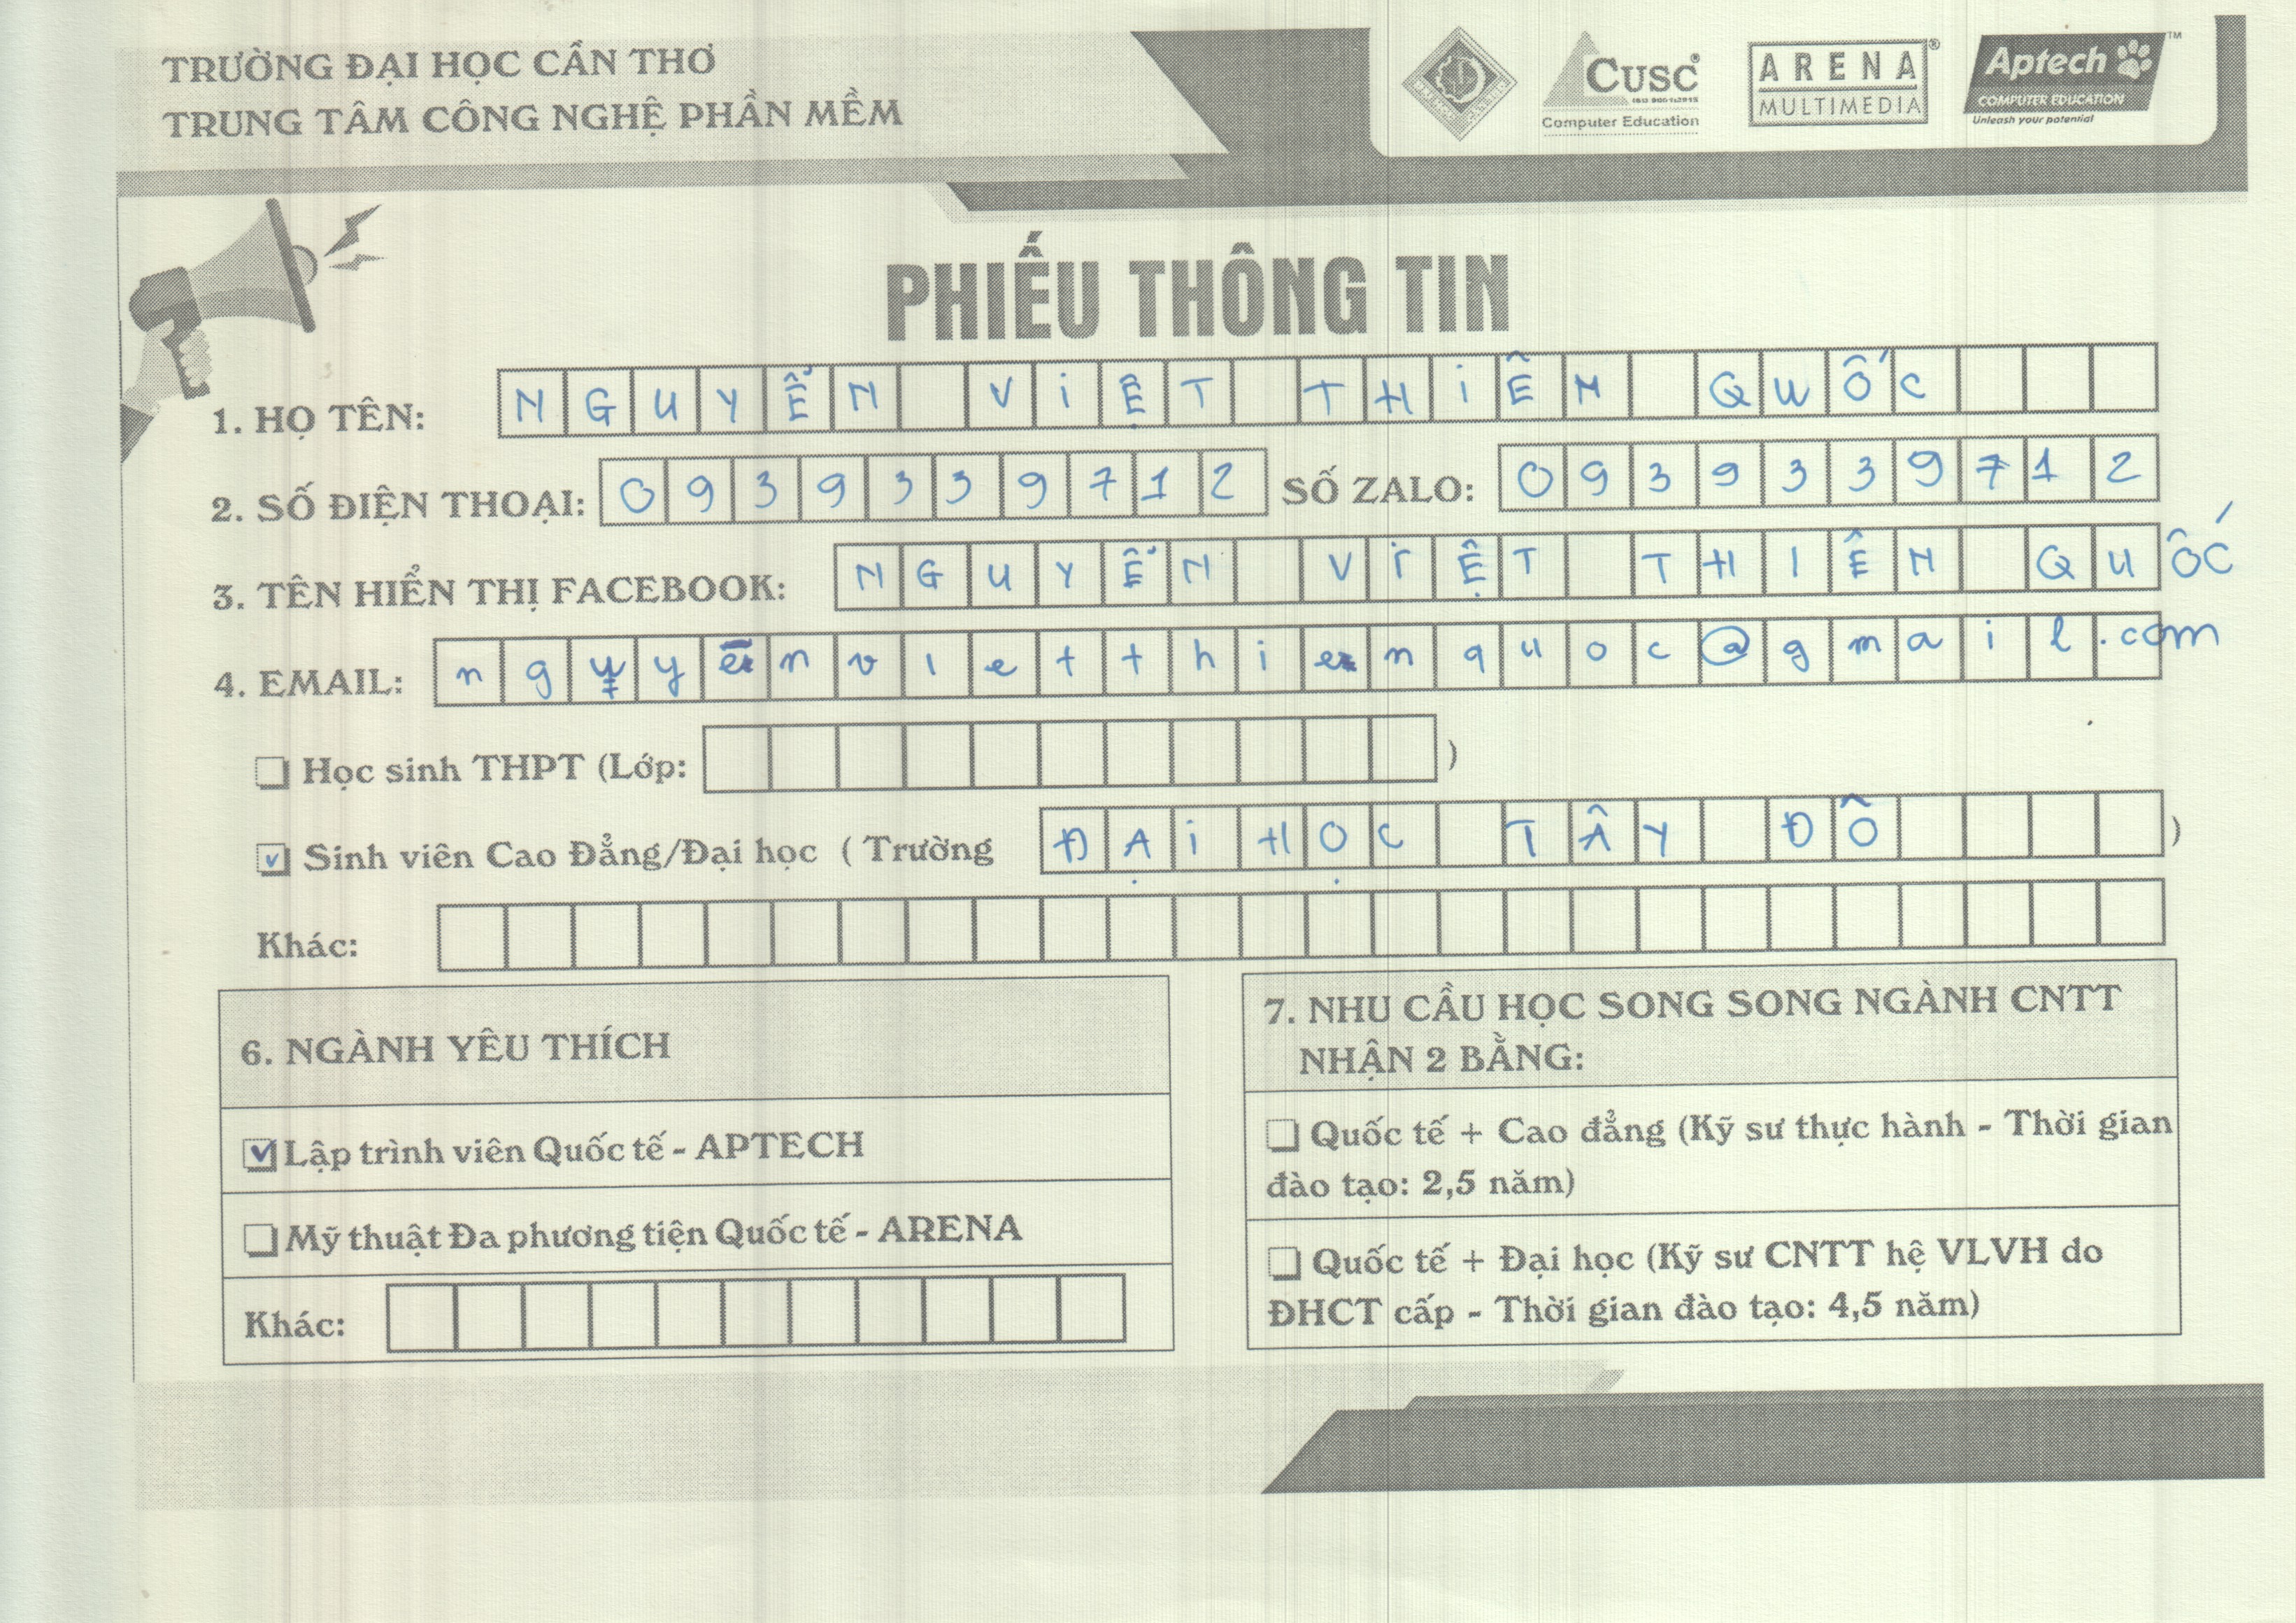 TRƯỜNG ĐẠI HỌC CẦN THƠ
TRUNG TÂM CÔNG NGHỆ PHẦN MỀM
CUSC®
ISO 9001:2015
Computer Education
ARENA®
MULTIMEDIA
Aptech™
COMPUTER EDUCATION
Unleash your potential
PHIẾU THÔNG TIN
1. HỌ TÊN: NGUYỄN VIỆT THIÊN QUỐC
2. SỐ ĐIỆN THOẠI: 0939339712 SỐ ZALO: 0939339712
3. TÊN HIỂN THỊ FACEBOOK: NGUYỄN VIỆT THIÊN QUỐC
4. EMAIL: nguyenvietthienquoc@gmail.com
Học sinh THPT (Lớp: )
Sinh viên Cao Đẳng/Đại học ( Trường ĐẠI HỌC TÂY ĐÔ )
Khác:
6. NGÀNH YÊU THÍCH
Lập trình viên Quốc tế - APTECH
Mỹ thuật Đa phương tiện Quốc tế - ARENA
Khác:
7. NHU CẦU HỌC SONG SONG NGÀNH CNTT
NHẬN 2 BẰNG:
Quốc tế + Cao đẳng (Kỹ sư thực hành - Thời gian
đào tạo: 2,5 năm)
Quốc tế + Đại học (Kỹ sư CNTT hệ VLVH do
ĐHCT cấp - Thời gian đào tạo: 4,5 năm)